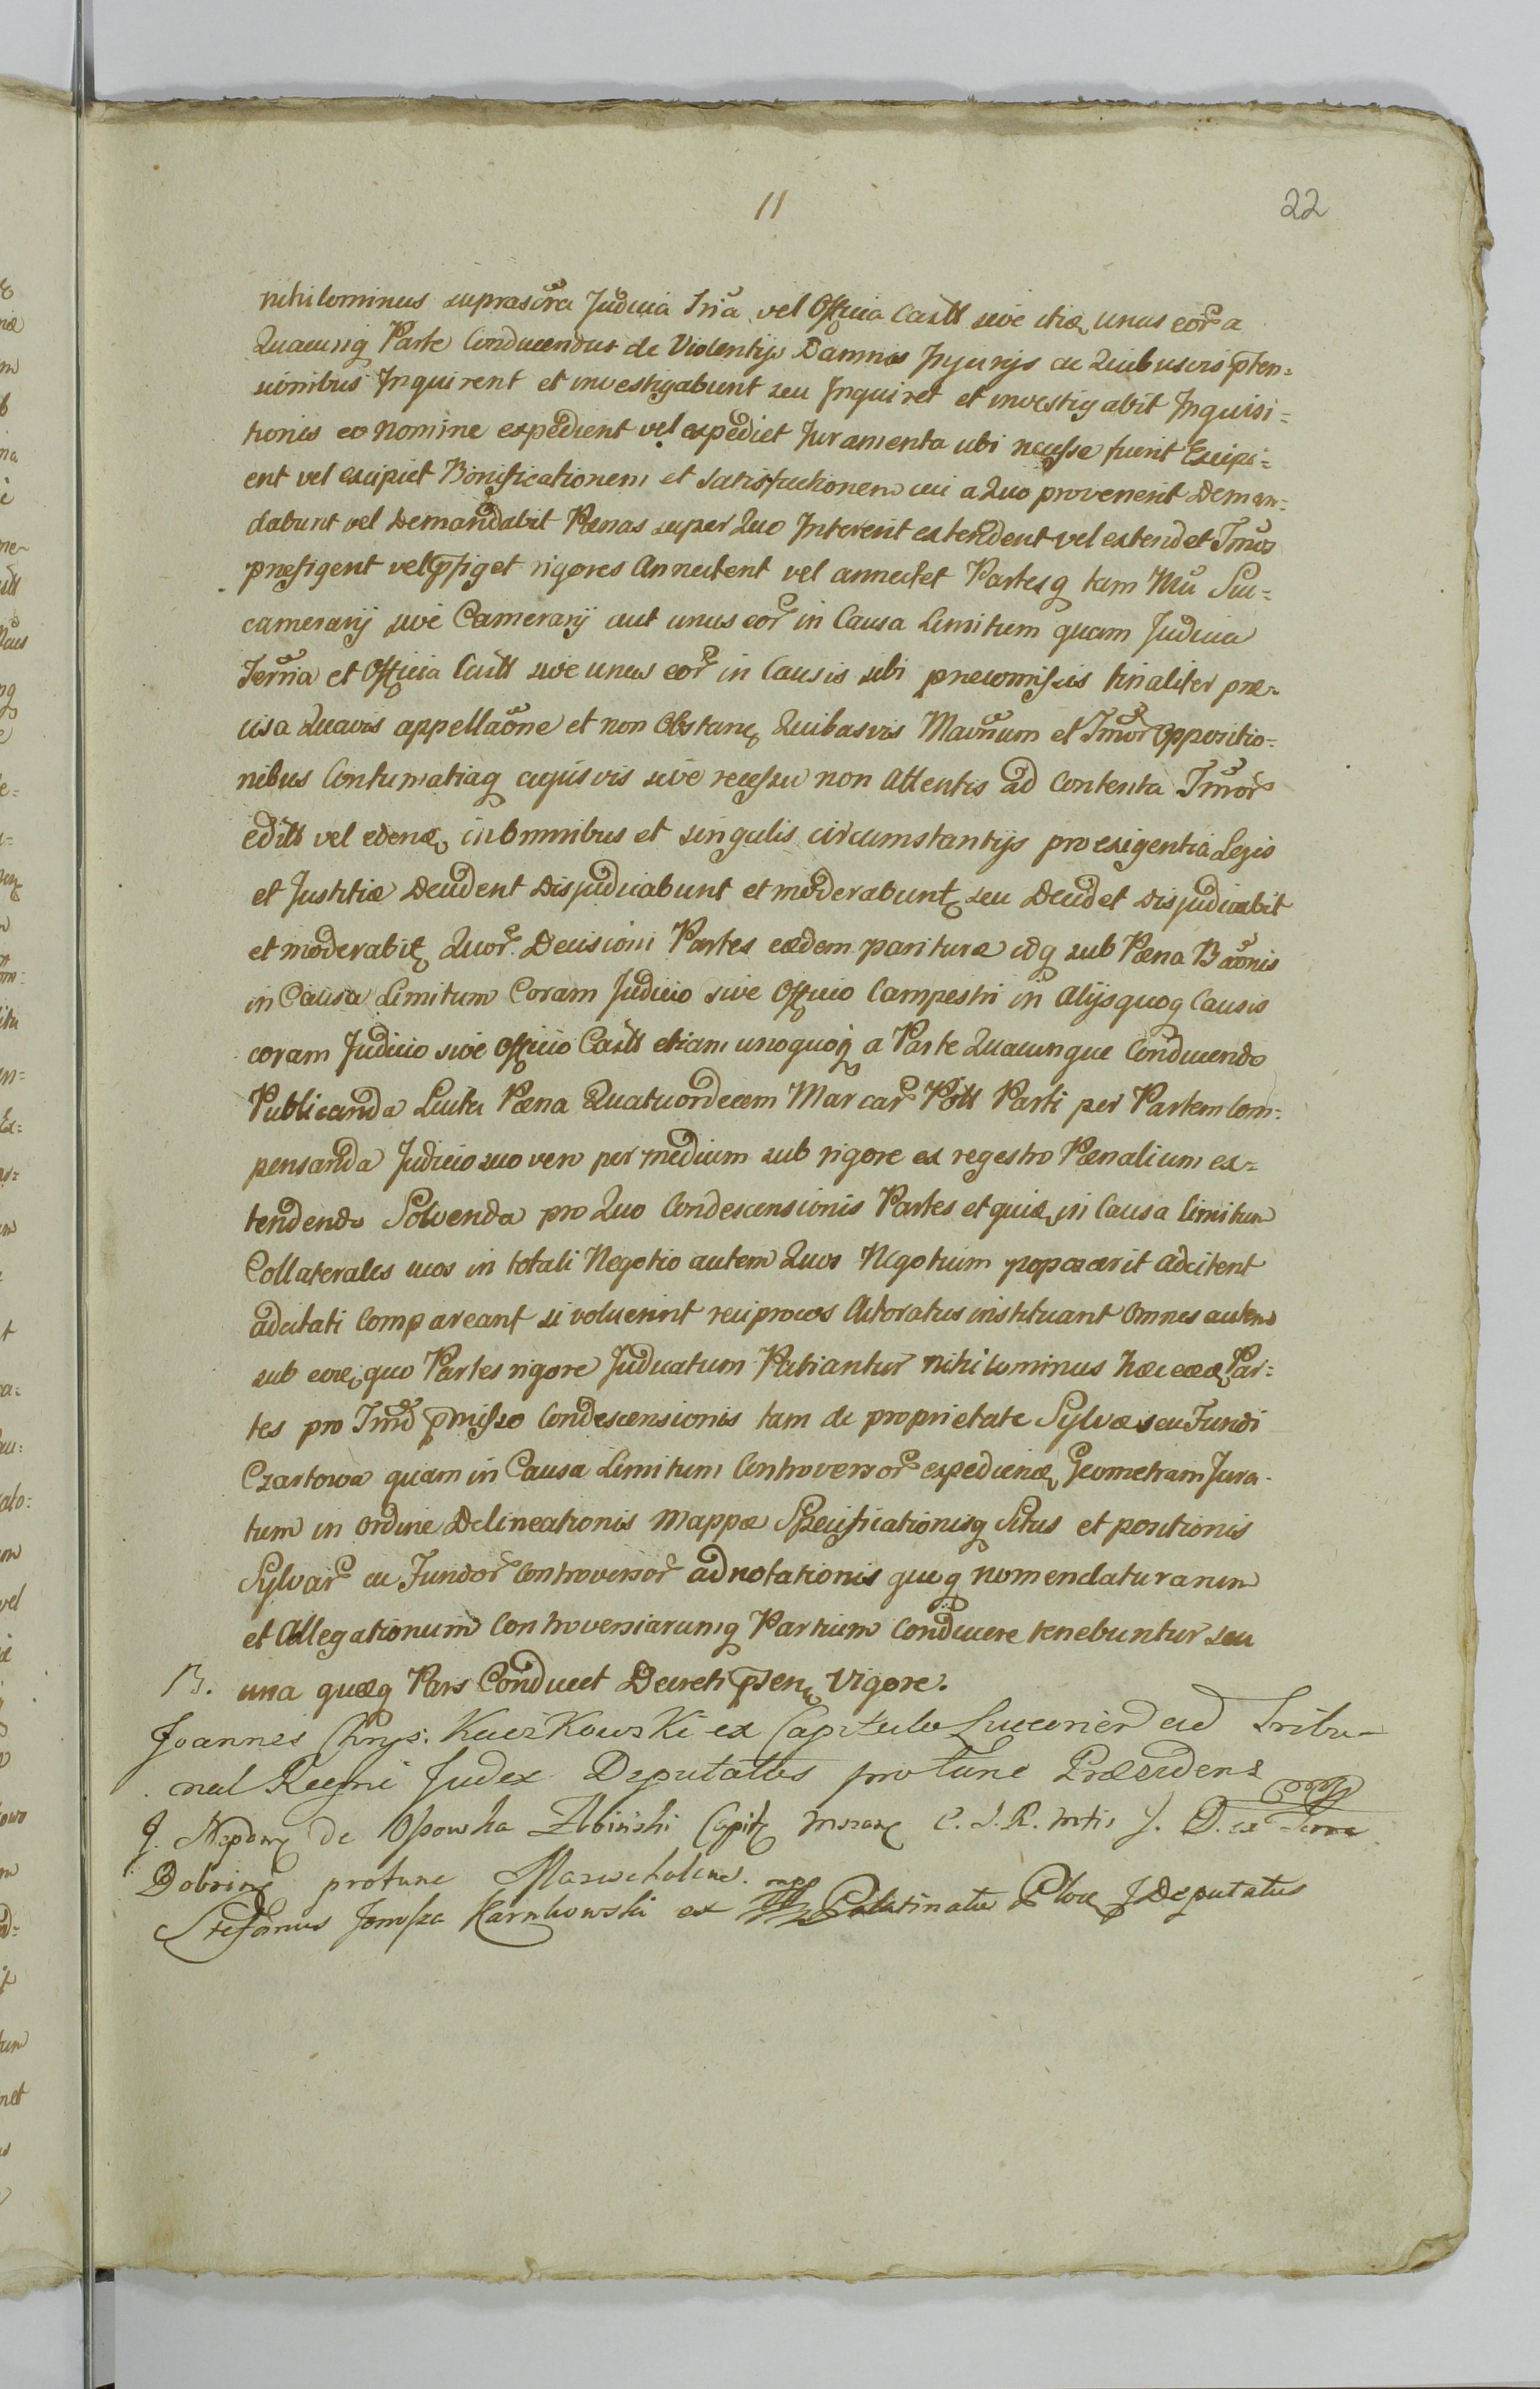 11
22
nihilominus suprascra Judicia Tria vel Officia Castt sive itiæ unus eor a
Quacunq Parte Conducendus de Violentijs Damnis Injurijs ac Quibusvis pten=
sionibus Inquirent et investigabunt seu Inquiret et investigabit Inquisi=
tionis eo nomine expedient vel expediet Juramenta ubi necesse fuerit Excipi=
ent vel excipiet Bonificationem et satisfactionem cui a Quo provenerit Deman=
dabunt vel Demandabit Pænas super Quo Intererit extendent vel extendet Tmos
prefigent vel pfiget rigores Annectent vel annectet Partesq tam Mti Suc=
camerarij sive Camerarij aut unus eor in Causa Limitum quam Judicia
Terria et Officia Castt sive unus eor in Causis sibi precomissis finaliter præ=
cisa Quavis appellaône et non Obstanę Quibusvis Maônum et Tmor Oppositio=
nibus Contumatiaq cujusvis sive recessu non Attentis ad Contenta Tmor
editt vel edenæ in omnibus et singulis circumstantijs pro exigentia Legis
et Justitiæ Decident Disjudicabunt et moderabunt seu Decidet Disjudicabit
et moderabit Quor Decisioni Partes eædem parituræ idq sub Pæna Bâonis
in Causa Limitum Coram Judicio sive Officio Campestri in Alijsquoq Causis
coram Judicio sive Officio Castt etiam unoquoq a Parte Quacunque Conducendo
Publicanda Luita Pæna Quatuordecem Marcar Pott Parti per Partem Com=
pensanda Judicio suo vero per medium sub rigore ex regestro Pænalium ex=
tendendo Solvenda pro Quo Condescensionis Partes et quidæ in Causa limitum
Collaterales suos in totali Negotio autem Quos Negotium poposcerit adcitent
adcitati Compareant si voluerint reciprocos Actoratus instituant Omnes autem
sub eoæ quo Partes rigore Judicatum Patiantur nihilominus hæc eæd Par=
tes pro Tmo pmisso Condescensionis tam de proprietate Sylvæ seu Fundi
Czartowa quam in Causa Limitum Controversor expedienæ Geometram Jura=
tum in Ordine Delineationis Mappæ Specificationisq Situs et positionis
Sylvar ac Fundor Controversor adnotationis queq nomenclaturarum
et Allegationum Controversiarumq Partium Conducere tenebuntur seu
B. una quæq Pars Conducet Decreti psen Vigore.
Joannes Chrys: Kaczkowski ex Capitulo Luceorien ad Tribu=
nal Regni Judex Deputatus pro tunc Præsidens
J. Nepom de Ossowka Zboinski Capit Mszan C. S. R. Mtis J. D. ex Terra
Dobrine protunc Marschalcus. mpp
Stefanus Junosza Karnkowski ex Palatinatu Ploc J Deputatus